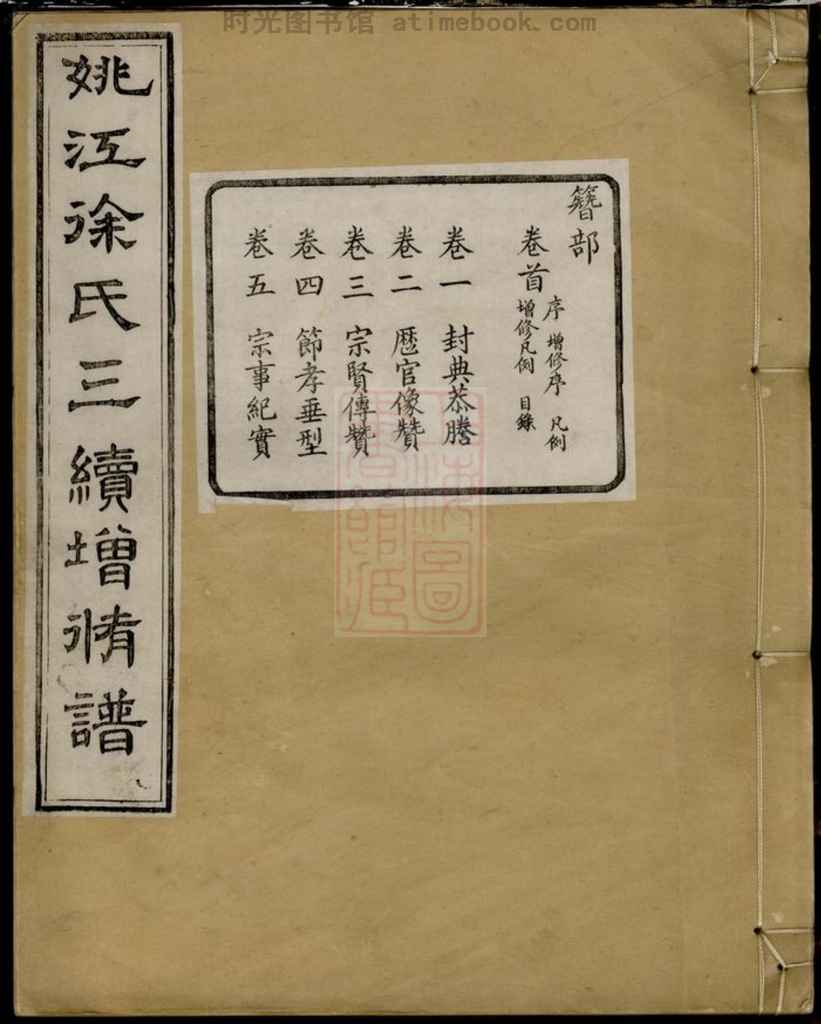 时光图书馆 atimebook.com
簪部
卷首 序 增修序 凡例
增修凡例 目錄
卷一 封典恭謄
卷二 歷官像贊
卷三 宗賢傳贊
卷四 節孝垂型
卷五 宗事紀實
姚江徐氏三續增脩譜